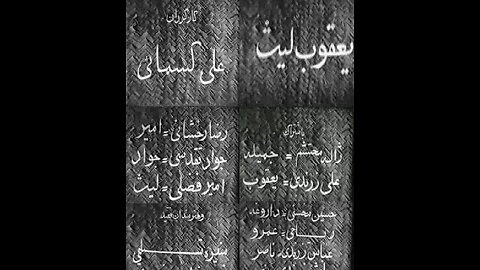 یعقوب لیث
کارگردان
علی کسمائی
با شرکت
ژاله محتشم = جمیله
علی زرندی = یعقوب
رضا رخشانی = امیر
جواد تقدسی = جواد
امیر فضلی = لیث
حسین محسنی = داروغه
عمرو
عباس زرندی = ناصر
و هنرمندان فقید